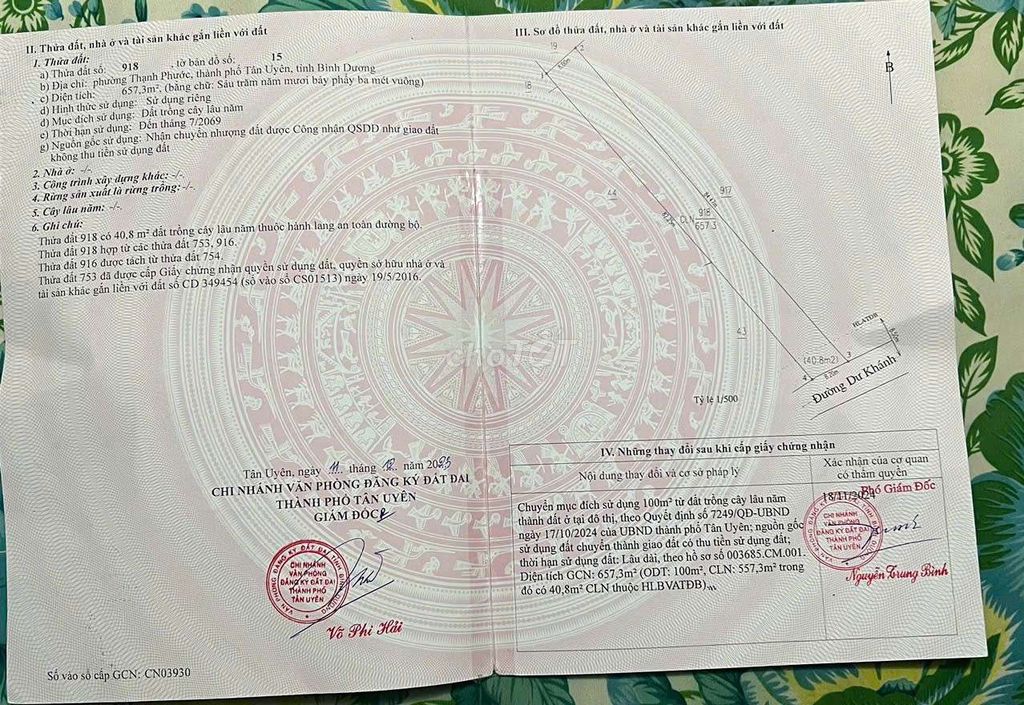 II. Thửa đất, nhà ở và tài sản khác gắn liền với đất
1. Thửa đất:
a) Thửa đất số: 918 , tờ bản đồ số: 15
b) Địa chỉ: phường Thạnh Phước, thành phố Tân Uyên, tỉnh Bình Dương
c) Diện tích: 657,3m², (bằng chữ: Sáu trăm năm mươi bảy phẩy ba mét vuông)
d) Hình thức sử dụng: Sử dụng riêng
đ) Mục đích sử dụng: Đất trồng cây lâu năm
e) Thời hạn sử dụng: Đến tháng 7/2069
g) Nguồn gốc sử dụng: Nhận chuyển nhượng đất được Công nhận QSDĐ như giao đất
không thu tiền sử dụng đất
2. Nhà ở: -/-.
3. Công trình xây dựng khác: -/-.
4. Rừng sản xuất là rừng trồng: -/-.
5. Cây lâu năm: -/-.
6. Ghi chú:
Thửa đất 918 có 40,8 m² đất trồng cây lâu năm thuộc hành lang an toàn đường bộ.
Thửa đất 918 hợp từ các thửa đất 753, 916.
Thửa đất 916 được tách từ thửa đất 754.
Thửa đất 753 đã được cấp Giấy chứng nhận quyền sử dụng đất, quyền sở hữu nhà ở và
tài sản khác gắn liền với đất số CD 349454 (số vào sổ CS01513) ngày 19/5/2016.
Tân Uyên, ngày 11 tháng 12 năm 2023
CHI NHÁNH VĂN PHÒNG ĐĂNG KÝ ĐẤT ĐAI
THÀNH PHỐ TÂN UYÊN
GIÁM ĐỐC
VĂN PHÒNG ĐĂNG KÝ ĐẤT ĐAI TỈNH BÌNH DƯƠNG
CHI NHÁNH
VĂN PHÒNG
ĐĂNG KÝ ĐẤT ĐAI
THÀNH PHỐ
TÂN UYÊN
Võ Phi Hải
Số vào sổ cấp GCN: CN03930
III. Sơ đồ thửa đất, nhà ở và tài sản khác gắn liền với đất
19
2
1
18
B
44
917
CLN
918
657.3
43
HLATĐB
(40.8m2)
3
4
Đường Dư Khánh
Tỷ lệ 1/500
chợTỐT
IV. Những thay đổi sau khi cấp giấy chứng nhận
Nội dung thay đổi và cơ sở pháp lý
Xác nhận của cơ quan
có thẩm quyền
Chuyển mục đích sử dụng 100m² từ đất trồng cây lâu năm
thành đất ở tại đô thị, theo Quyết định số 7249/QĐ-UBND
ngày 17/10/2024 của UBND thành phố Tân Uyên; nguồn gốc
sử dụng đất chuyển thành giao đất có thu tiền sử dụng đất;
thời hạn sử dụng đất: Lâu dài, theo hồ sơ số 003685.CM.001.
Diện tích GCN: 657,3m² (ODT: 100m², CLN: 557,3m² trong
đó có 40,8m² CLN thuộc HLBVATĐB)
18/11/2024
Phó Giám Đốc
CHI NHÁNH
VĂN PHÒNG
ĐĂNG KÝ ĐẤT ĐAI
THÀNH PHỐ
TÂN UYÊN
Nguyễn Trung Bình